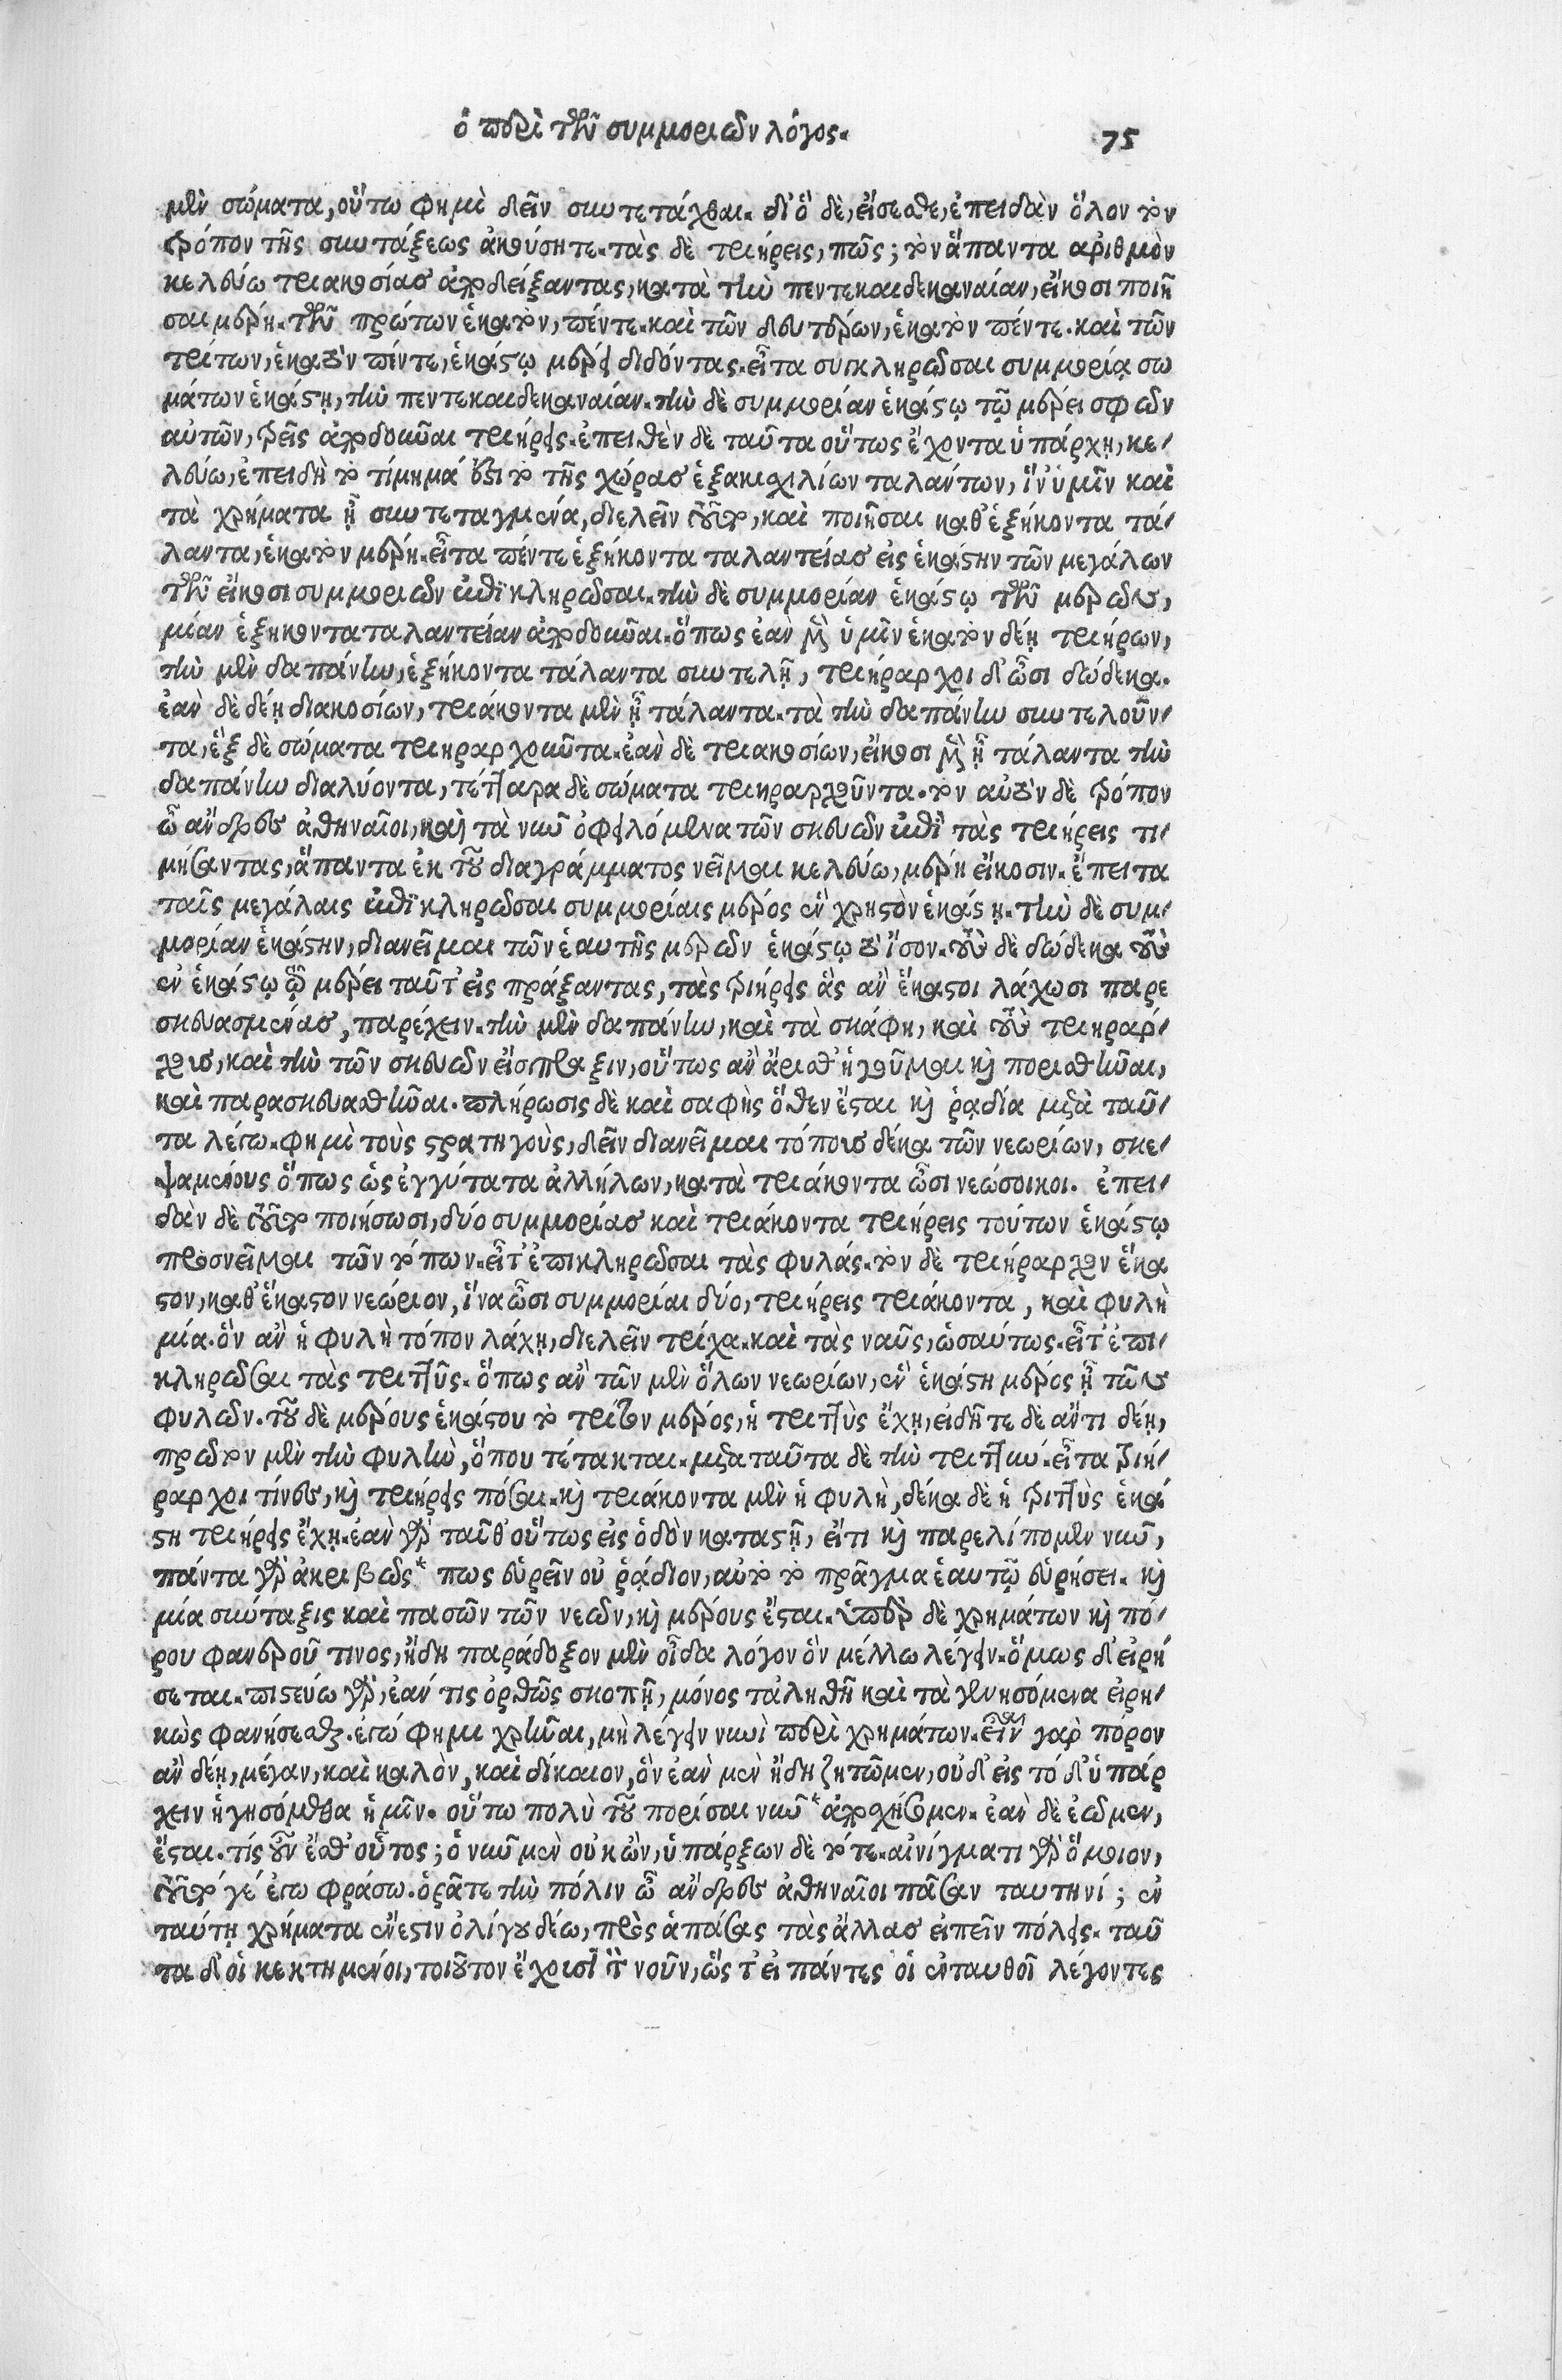 ὁ περὶ τῶν συμμοριῶν λόγος. 75
μὲν σώματα, οὕτω φημὶ δεῖν συντετάχθαι. δι' ὃ δὲ, εἴσεσθε, ἐπειδὰν ὅλον τὸν
τρόπον τῆς συντάξεως ἀκούσητε. τὰς δὲ τριήρεις, πῶς; τὸν ἅπαντα ἀριθμὸν
κελεύω τριακοσίας ἀποδείξαντας, κατὰ τὴν πεντεκαιδεκαναίαν, εἴκοσι ποιῆ
σαι μέρη. τῶν πρώτων ἑκατὸν, πέντε. καὶ τῶν δευτέρων, ἑκατὸν πέντε. καὶ τῶν
τρίτων, ἑκατὸν πέντε, ἑκάστῳ μέρει διδόντας. εἶτα συγκληρῶσαι συμμορίᾳ σω
μάτων ἑκάστῃ, τὴν πεντεκαιδεκαναίαν. τὴν δὲ συμμορίαν ἑκάστῳ τῷ μέρει σφῶν
αὐτῶν, τρεῖς ἀποδοῦναι τριήρεις. ἐπειθὲν δὲ ταῦτα οὕτως ἔχοντα ὑπάρχῃ, κε-
λεύω, ἐπειδὴ τὸ τίμημά ἐστι τὸ τῆς χώρας ἑξακισχιλίων ταλάντων, ἵν' ὑμῖν καὶ
τὰ χρήματα ᾖ συντεταγμένα, διελεῖν τοῦτο, καὶ ποιῆσαι καθ' ἑξήκοντα τά-
λαντα, ἑκατὸν μέρη. εἶτα πέντε ἑξήκοντα ταλαντείας εἰς ἑκάστην τῶν μεγάλων
τῶν εἴκοσι συμμοριῶν ἐπικληρῶσαι. τὴν δὲ συμμορίαν ἑκάστῳ τῶν μερῶν,
μίαν ἑξηκονταταλαντείαν ἀποδοῦναι. ὅπως ἐὰν μὲν ὑμῖν ἑκατὸν δέῃ τριήρων,
τὴν μὲν δαπάνην, ἑξήκοντα τάλαντα συντελῇ, τριήραρχοι δ' ὦσι δώδεκα.
ἐὰν δὲ δέῃ διακοσίων, τριάκοντα μὲν ᾖ τάλαντα. τὰ τὴν δαπάνην συντελοῦν-
τα, ἓξ δὲ σώματα τριηραρχοῦντα. ἐὰν δὲ τριακοσίων, εἴκοσι μὲν ᾖ τάλαντα τὴν
δαπάνην διαλύοντα, τέτταρα δὲ σώματα τριηραρχοῦντα. τὸν αὐτὸν δὲ τρόπον
ὦ ἄνδρες ἀθηναῖοι, καὶ τὰ νῦν ὀφειλόμενα τῶν σκευῶν ἐπὶ τὰς τριήρεις τι-
μήσαντας, ἅπαντα ἐκ τοῦ διαγράμματος νεῖμαι κελεύω, μέρη εἴκοσιν. ἔπειτα
ταῖς μεγάλαις ἐπικληρῶσαι συμμορίαις μέρος ἓν χρηστὸν ἑκάστῃ. τὴν δὲ συμ-
μορίαν ἑκάστην, διανεῖμαι τῶν ἑαυτῆς μερῶν ἑκάστῳ τὸ ἴσον. τοὺς δὲ δώδεκα τοὺς
ἐν ἑκάστῳ τῷ μέρει ταῦτ' εἰς πράξαντας, τὰς τριήρεις ἃς ἂν ἕκαστοι λάχωσι παρε
σκευασμένας, παρέχειν. τὴν μὲν δαπάνην, καὶ τὰ σκάφη, καὶ τοὺς τριηράρ-
χους, καὶ τὴν τῶν σκευῶν εἴσπραξιν, οὕτως ἂν ἄρισθ' ἡγοῦμαι καὶ πορισθῆναι,
καὶ παρασκευασθῆναι. πλήρωσις δὲ καὶ σαφὴς ὅθεν ἔσται καὶ ῥᾳδία μετὰ ταῦ-
τα λέγω. φημὶ τοὺς στρατηγοὺς, δεῖν διανεῖμαι τόπους δέκα τῶν νεωρίων, σκε-
ψαμένους ὅπως ὡς ἐγγύτατα ἀλλήλων, κατὰ τριάκοντα ὦσι νεώσοικοι. ἐπει-
δὰν δὲ τοῦτο ποιήσωσι, δύο συμμορίας καὶ τριάκοντα τριήρεις τούτων ἑκάστῳ
προσνεῖμαι τῶν τόπων. εἶτ' ἐπικληρῶσαι τὰς φυλάς. τὸν δὲ τριήραρχον ἕκα
στον, καθ' ἕκαστον νεώριον, ἵνα ὦσι συμμορίαι δύο, τριήρεις τριάκοντα, καὶ φυλὴ
μία. ὃν ἂν ἡ φυλὴ τόπον λάχῃ, διελεῖν τρίχα. καὶ τὰς ναῦς, ὡσαύτως. εἶτ' ἐπι-
κληρῶσαι τὰς τριττῦς. ὅπως ἂν τῶν μὲν ὅλων νεωρίων, ἓν ἑκάστη μέρος ᾖ τῶν
φυλῶν. τοῦ δὲ μέρους ἑκάστου τὸ τρίτον μέρος, ἡ τριττὺς ἔχῃ, εἰδῆτε δὲ ἄν τι δέῃ,
πρῶτον μὲν τὴν φυλὴν, ὅπου τέτακται. μετὰ ταῦτα δὲ τὴν τριττύν. εἶτα τριή-
ραρχοι τίνες, καὶ τριήρεις πόσαι. καὶ τριάκοντα μὲν ἡ φυλὴ, δέκα δὲ ἡ τριττὺς ἑκά
στη τριήρεις ἔχῃ. ἐὰν γὰρ ταῦθ' οὕτως εἰς ὁδὸν καταστῇ, εἴ τι καὶ παρελίπομεν νῦν,
πάντα γὰρ ἀκριβῶς* πως εὑρεῖν οὐ ῥᾴδιον, αὐτὸ τὸ πρᾶγμα ἑαυτῷ εὑρήσει. καὶ
μία σύνταξις καὶ πασῶν τῶν νεῶν, καὶ μέρους ἔσται. ὑπὲρ δὲ χρημάτων καὶ πό-
ρου φανεροῦ τινος, ἤδη παράδοξον μὲν οἶδα λόγον ὃν μέλλω λέγειν. ὅμως δ' εἰρή
σεται. πιστεύω γὰρ, ἐάν τις ὀρθῶς σκοπῇ, μόνος τἀληθῆ καὶ τὰ γενησόμενα εἰρη-
κὼς φανήσεσθαι. ἐγώ φημι χρῆναι, μὴ λέγειν νυνὶ περὶ χρημάτων. εἶναι γὰρ πόρον
ἂν δέῃ, μέγαν, καὶ καλὸν, καὶ δίκαιον, ὃν ἐὰν μὲν ἤδη ζητῶμεν, οὐδ' εἰς τό δ' ὑπάρ
χειν ἡγησόμεθα ἡμῖν. οὕτω πολὺ τοῦ πορίσαι νῦν *ἀποχήσομεν. ἐὰν δὲ ἐῶμεν,
ἔσται. τίς οὖν ἔσθ' οὗτος; ὁ νῦν μὲν οὐκ ὢν, ὑπάρξων δὲ τότε. αἰνίγματι γὰρ ὅμοιον,
τοῦτό γε ἐγὼ φράσω. ὁρᾶτε τὴν πόλιν ὦ ἄνδρες ἀθηναῖοι πᾶσαν ταυτηνί; ἐν
ταύτῃ χρήματα ἔνεστιν ὀλίγου δέω, πρὸς ἁπάσας τὰς ἄλλας εἰπεῖν πόλεις. ταῦ
τα δ' οἱ κεκτημένοι, τοιοῦτον ἔχουσι τὸν νοῦν, ὥς τ' εἰ πάντες οἱ ἐνταυθοῖ λέγοντες